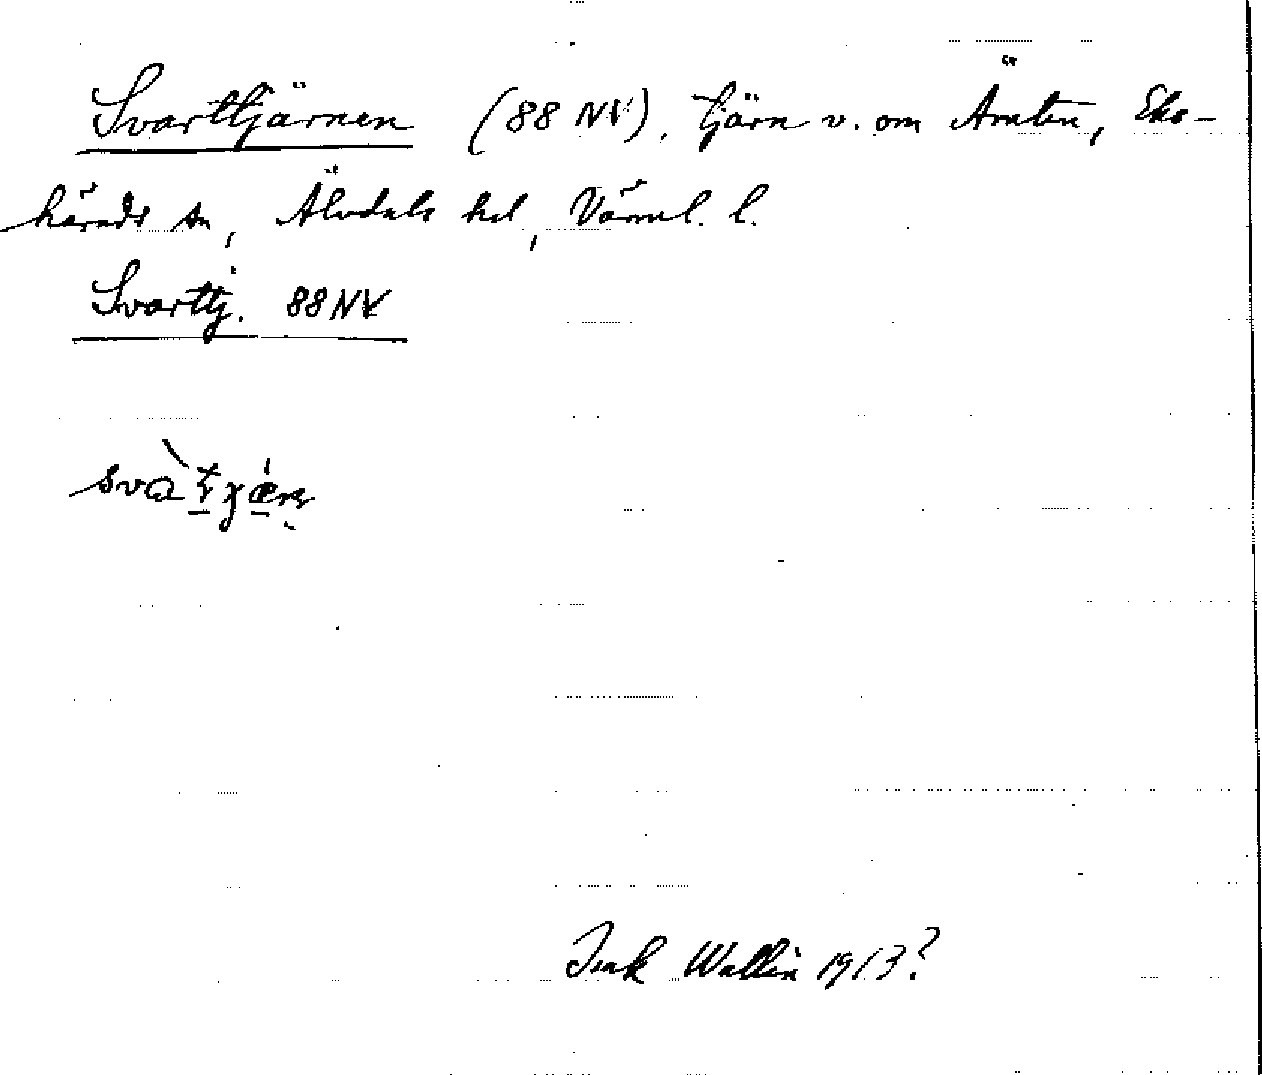 Svarttjärnen (88 NV), tjärn v. om Ämten, Eks-
härads sn, Älvdals hd, Värml. l.
Svarttj. 88NV
Wallin 1913?